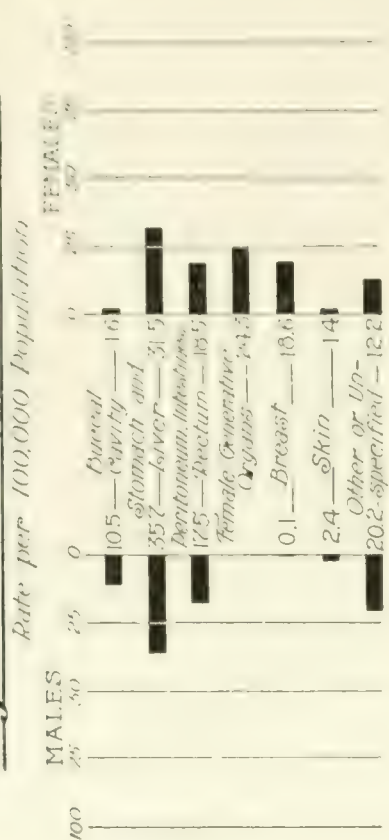 Rate per 100,000 Population
MALES FEMALES
100 75 50 25 0 0 25 50 75 100
Buccal
10.5 — Cavity — 1.6
Stomach and
35.7 — Liver — 31.5
Peritoneum, Intestines
17.5 — Rectum —
Female Generative
Organs — 24.5
0.1 — Breast — 18.6
2.4 — Skin — 1.4
Other or Un-
20.2 - specified - 12.2